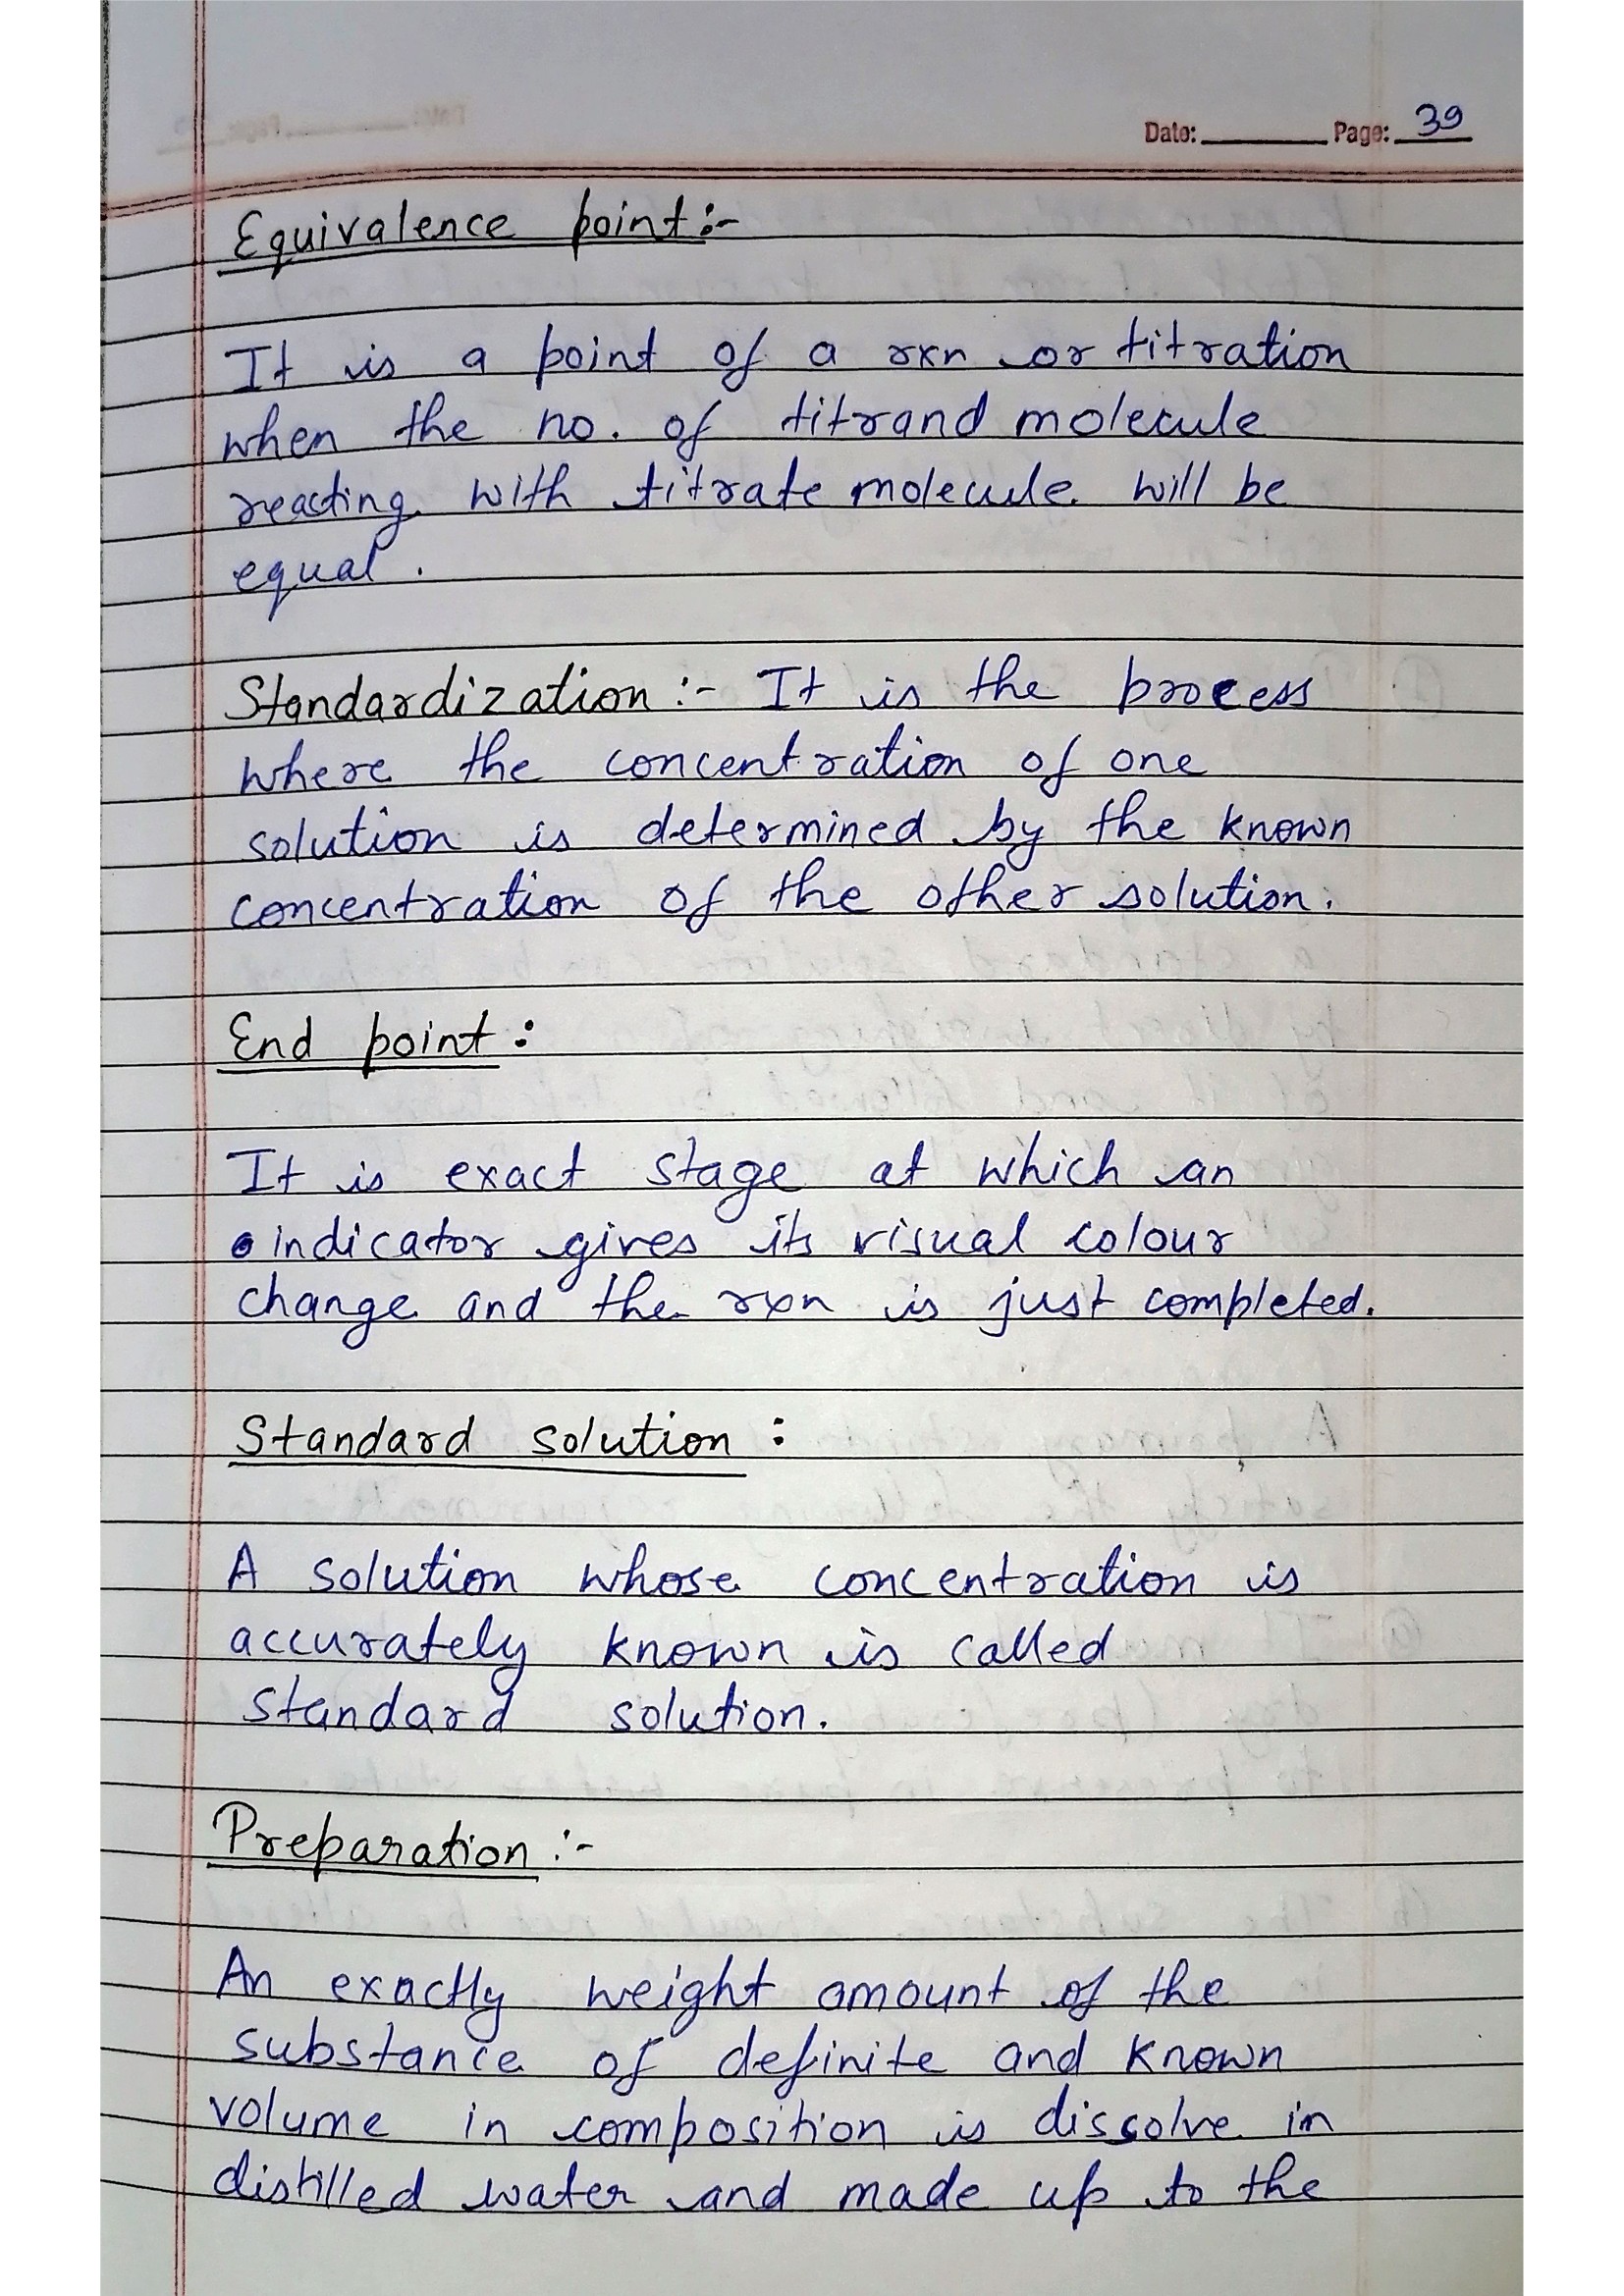 Date: Page: 39
Equivalence point:-
It is a point of a rxn or titration
when the no. of titrand molecule
reacting with titrate molecule will be
equal.
Standardization :- It is the process
where the concentration of one
solution is determined by the known
concentration of the other solution.
End point :
It is exact stage at which an
indicator gives its visual colour
change and the rxn is just completed.
Standard solution :
A solution whose concentration is
accurately known is called
standard solution.
Preparation :-
An exactly weight amount of the
substance of definite and known
volume in composition is dissolve in
distilled water and made up to the